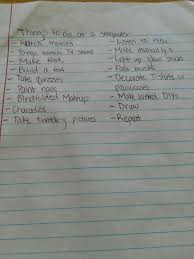 Things to do at a sleepover
- Watch movies
- Binge watch TV shows
- Make food
- Build a fort
- Take quizzes
- Paint nails
- Blindfolded Makeup
- Charades
- Take twinning pictures
- Listen to music
- Make musical.ly's
- Light up glow sticks
- Face masks
- Decorate T-shirts or
pillowcases
- Make DIYs
- Draw
- Repeat